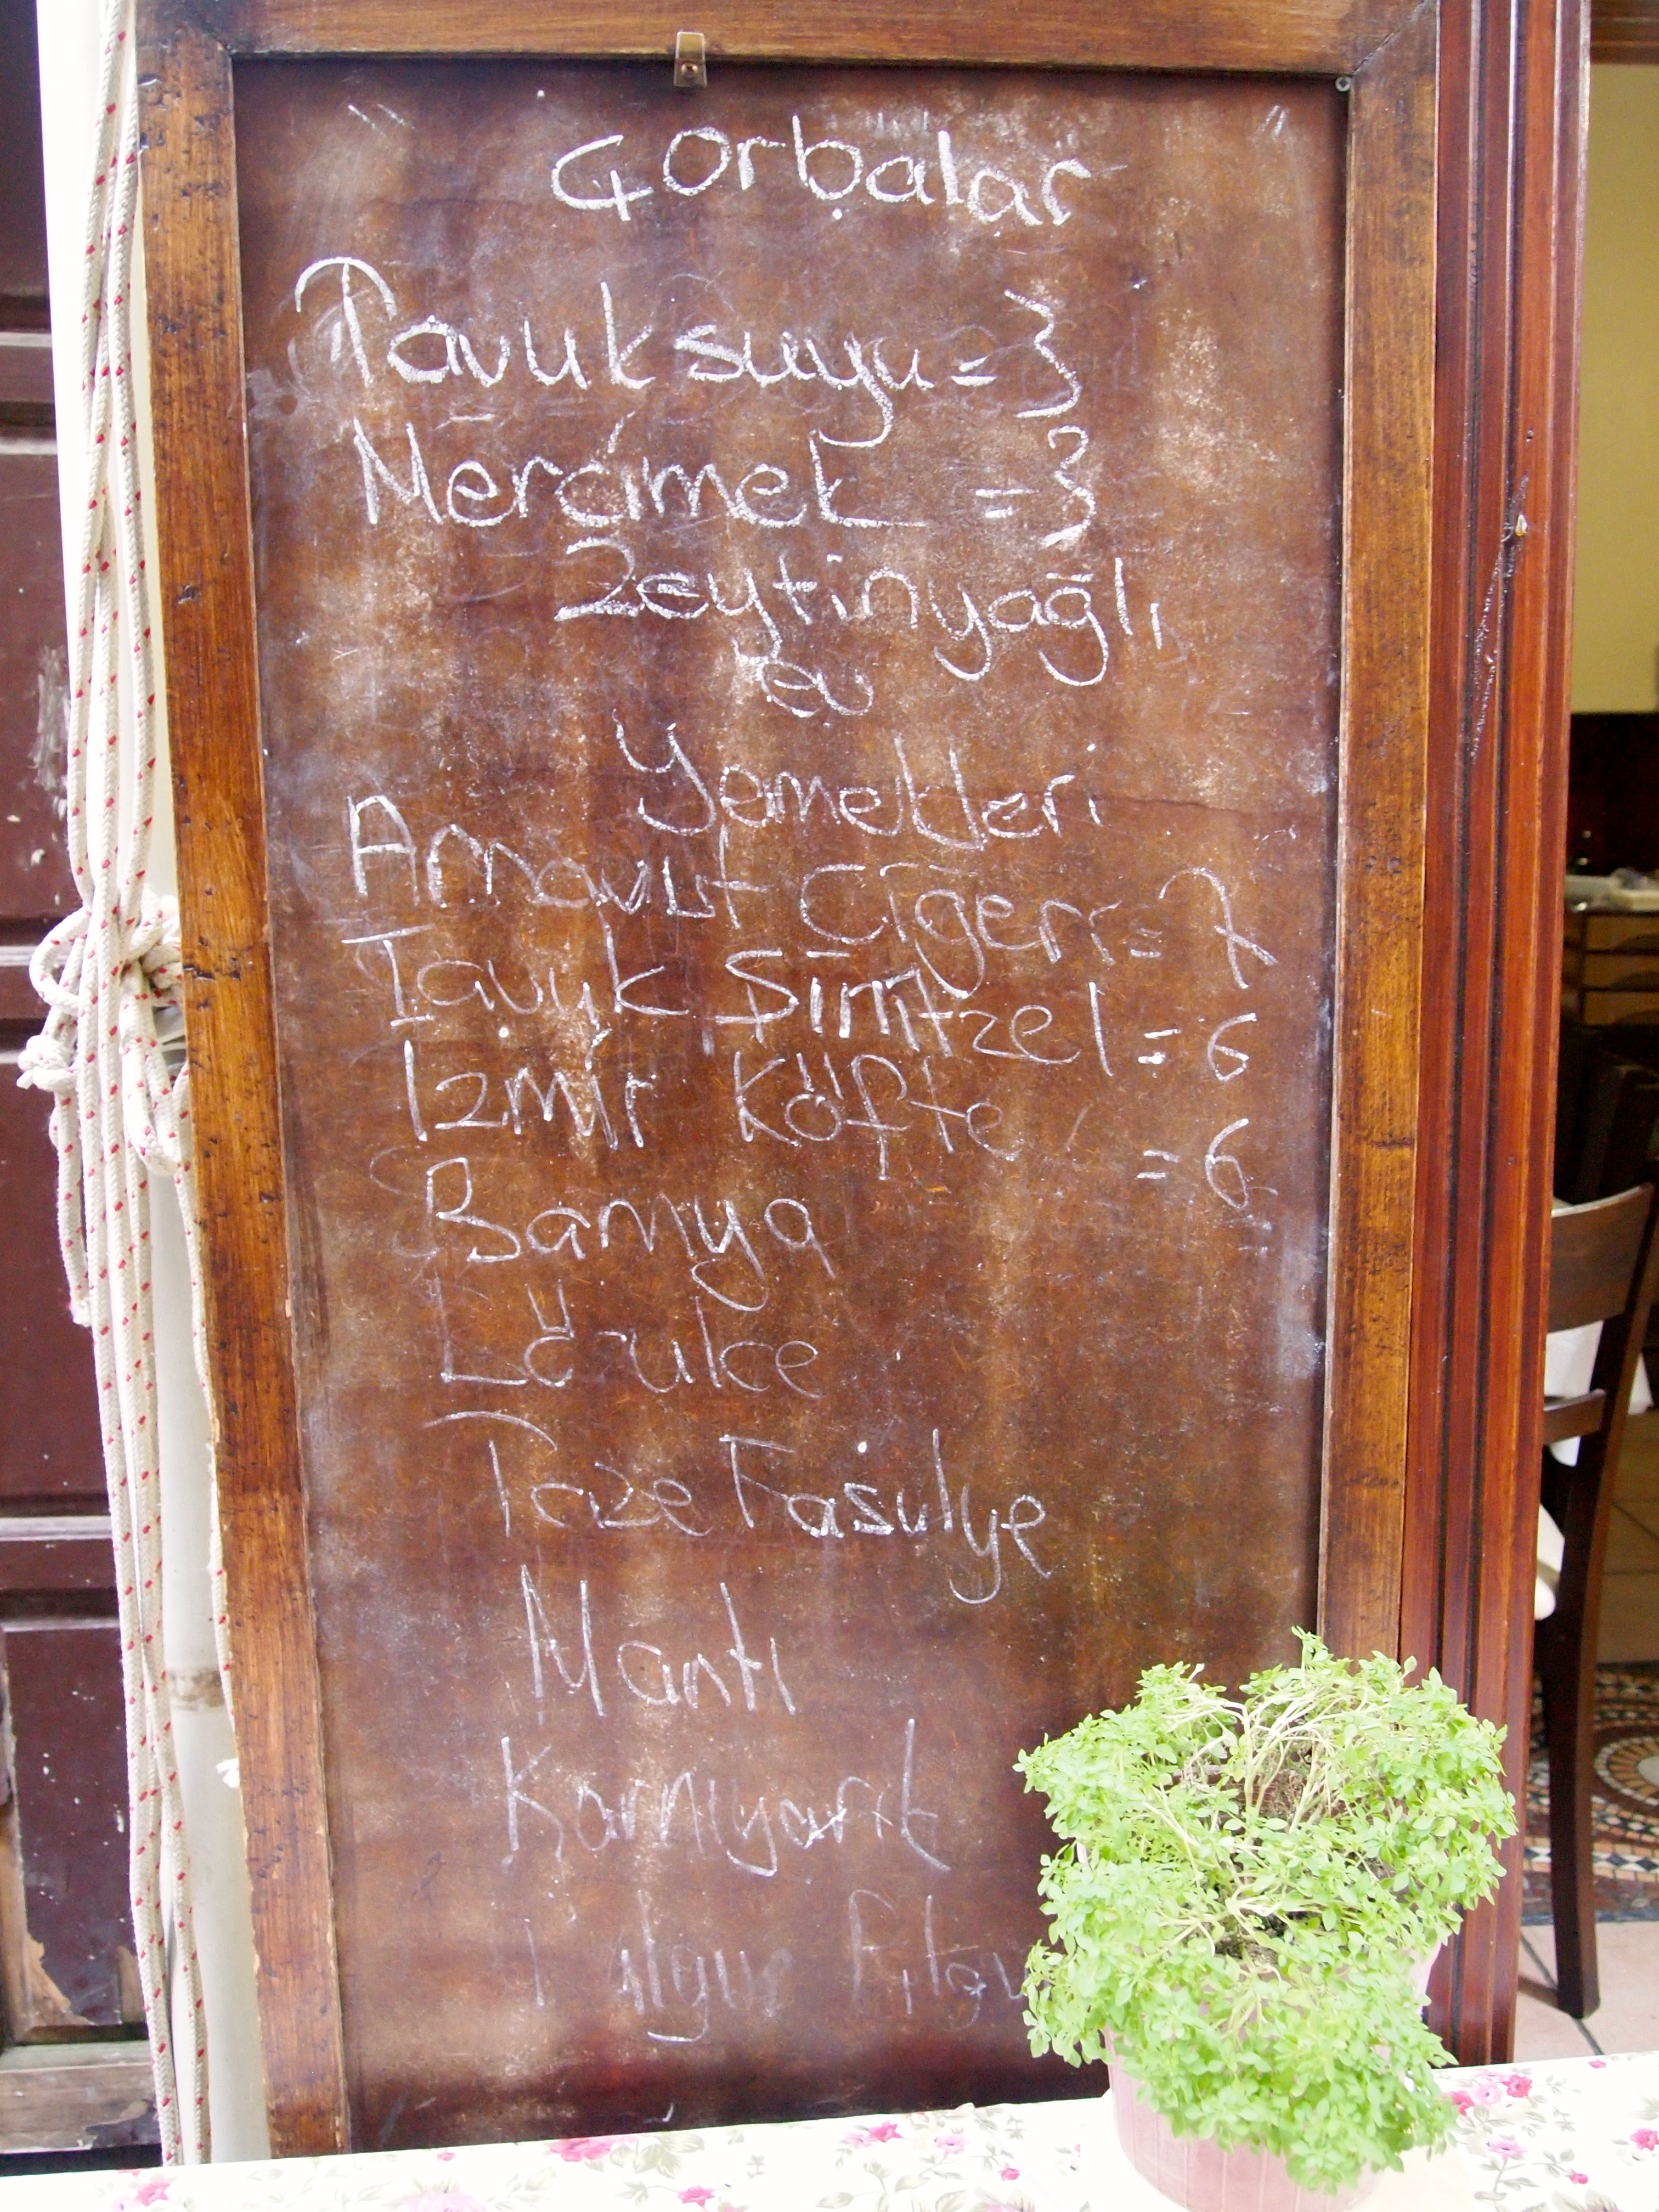 Çorbalar
Tavuksuyu = 3
Mercimek = 3
Zeytinyağlı
ev
Yemekleri
Arnavut Ciğeri = 7
Tavuk Şinitzel = 6
İzmir Köfte = 6
Bamya
Taze Fasulye
Mantı
Karnıyarık